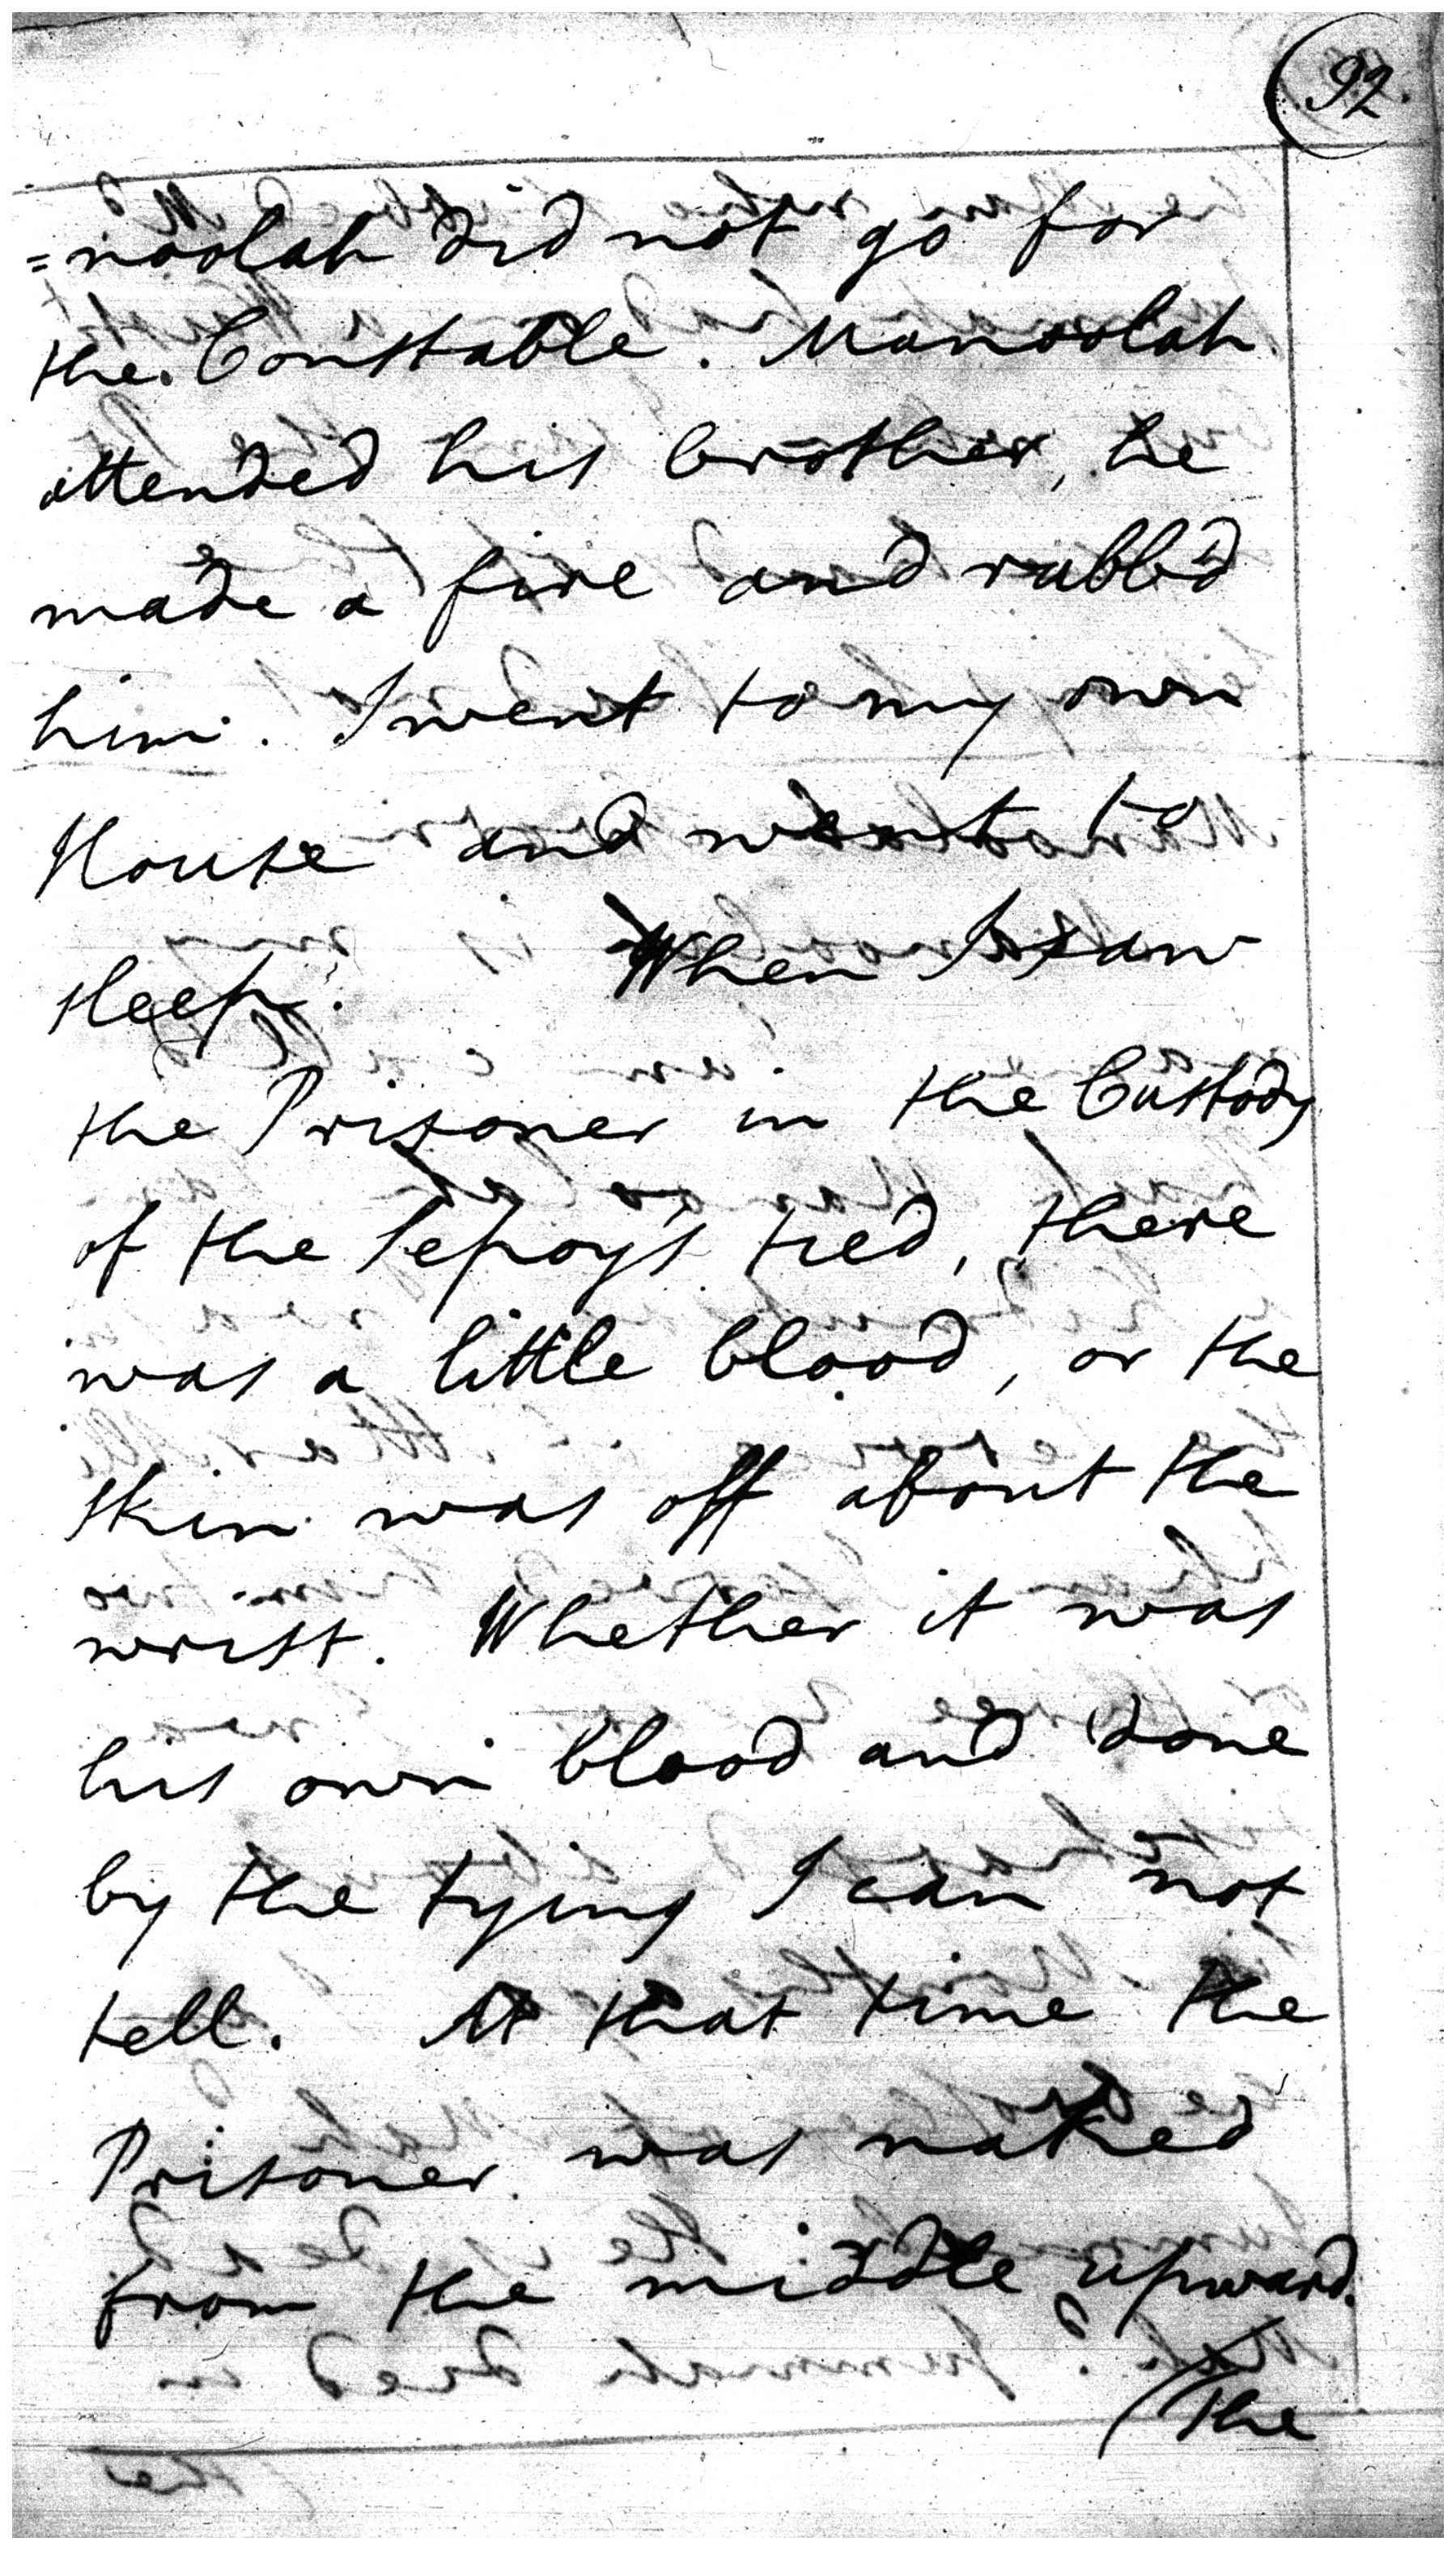 92.
=noolah did not go for
the Constable. Manoolah
attended his brother, he
made a fire and rubb'd
him. I went to my own
House and went to
sleep. When I saw
the Prisoner in the Custody
of the Sepoy's tied, there
was a little blood, or the
skin was off about the
wrist. Whether it was
his own blood and done
by the tying I can not
tell. At that time the
Prisoner was naked
from the middle upward.
The